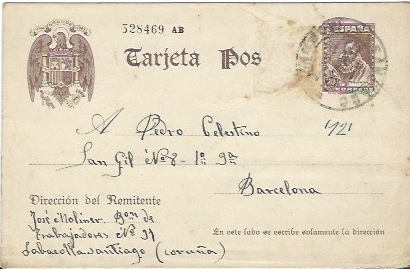 328469 AB
ESPAÑA
CORREOS
Tarjeta Pos
A Pedro Celestino 421
San Gil Nº 8 - 1º 2ª
Barcelona
Dirección del Remitente
José Moliner. Bon de
Trabajadores Nº 31
Labacolla Santiago (Coruña)
En este lado se escribe solamente la dirección